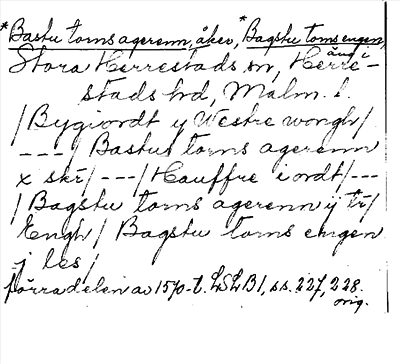 *Bastu torns agerenn, åker, *Bagstu torns engen,
äng i
Stora Herrestads sn, Herre-
stads hd, Malm. l.
/Bygiordt y Westre wongh/
---/Bastu torns agerenn
x skr/---/Hauffre i ordt/---
/Bagstu torns agerenn ij tr/
Engh/ Bagstu torns engen
j les/
förra delen av 1570-t. LSLB1, ss. 227, 228.
orig.